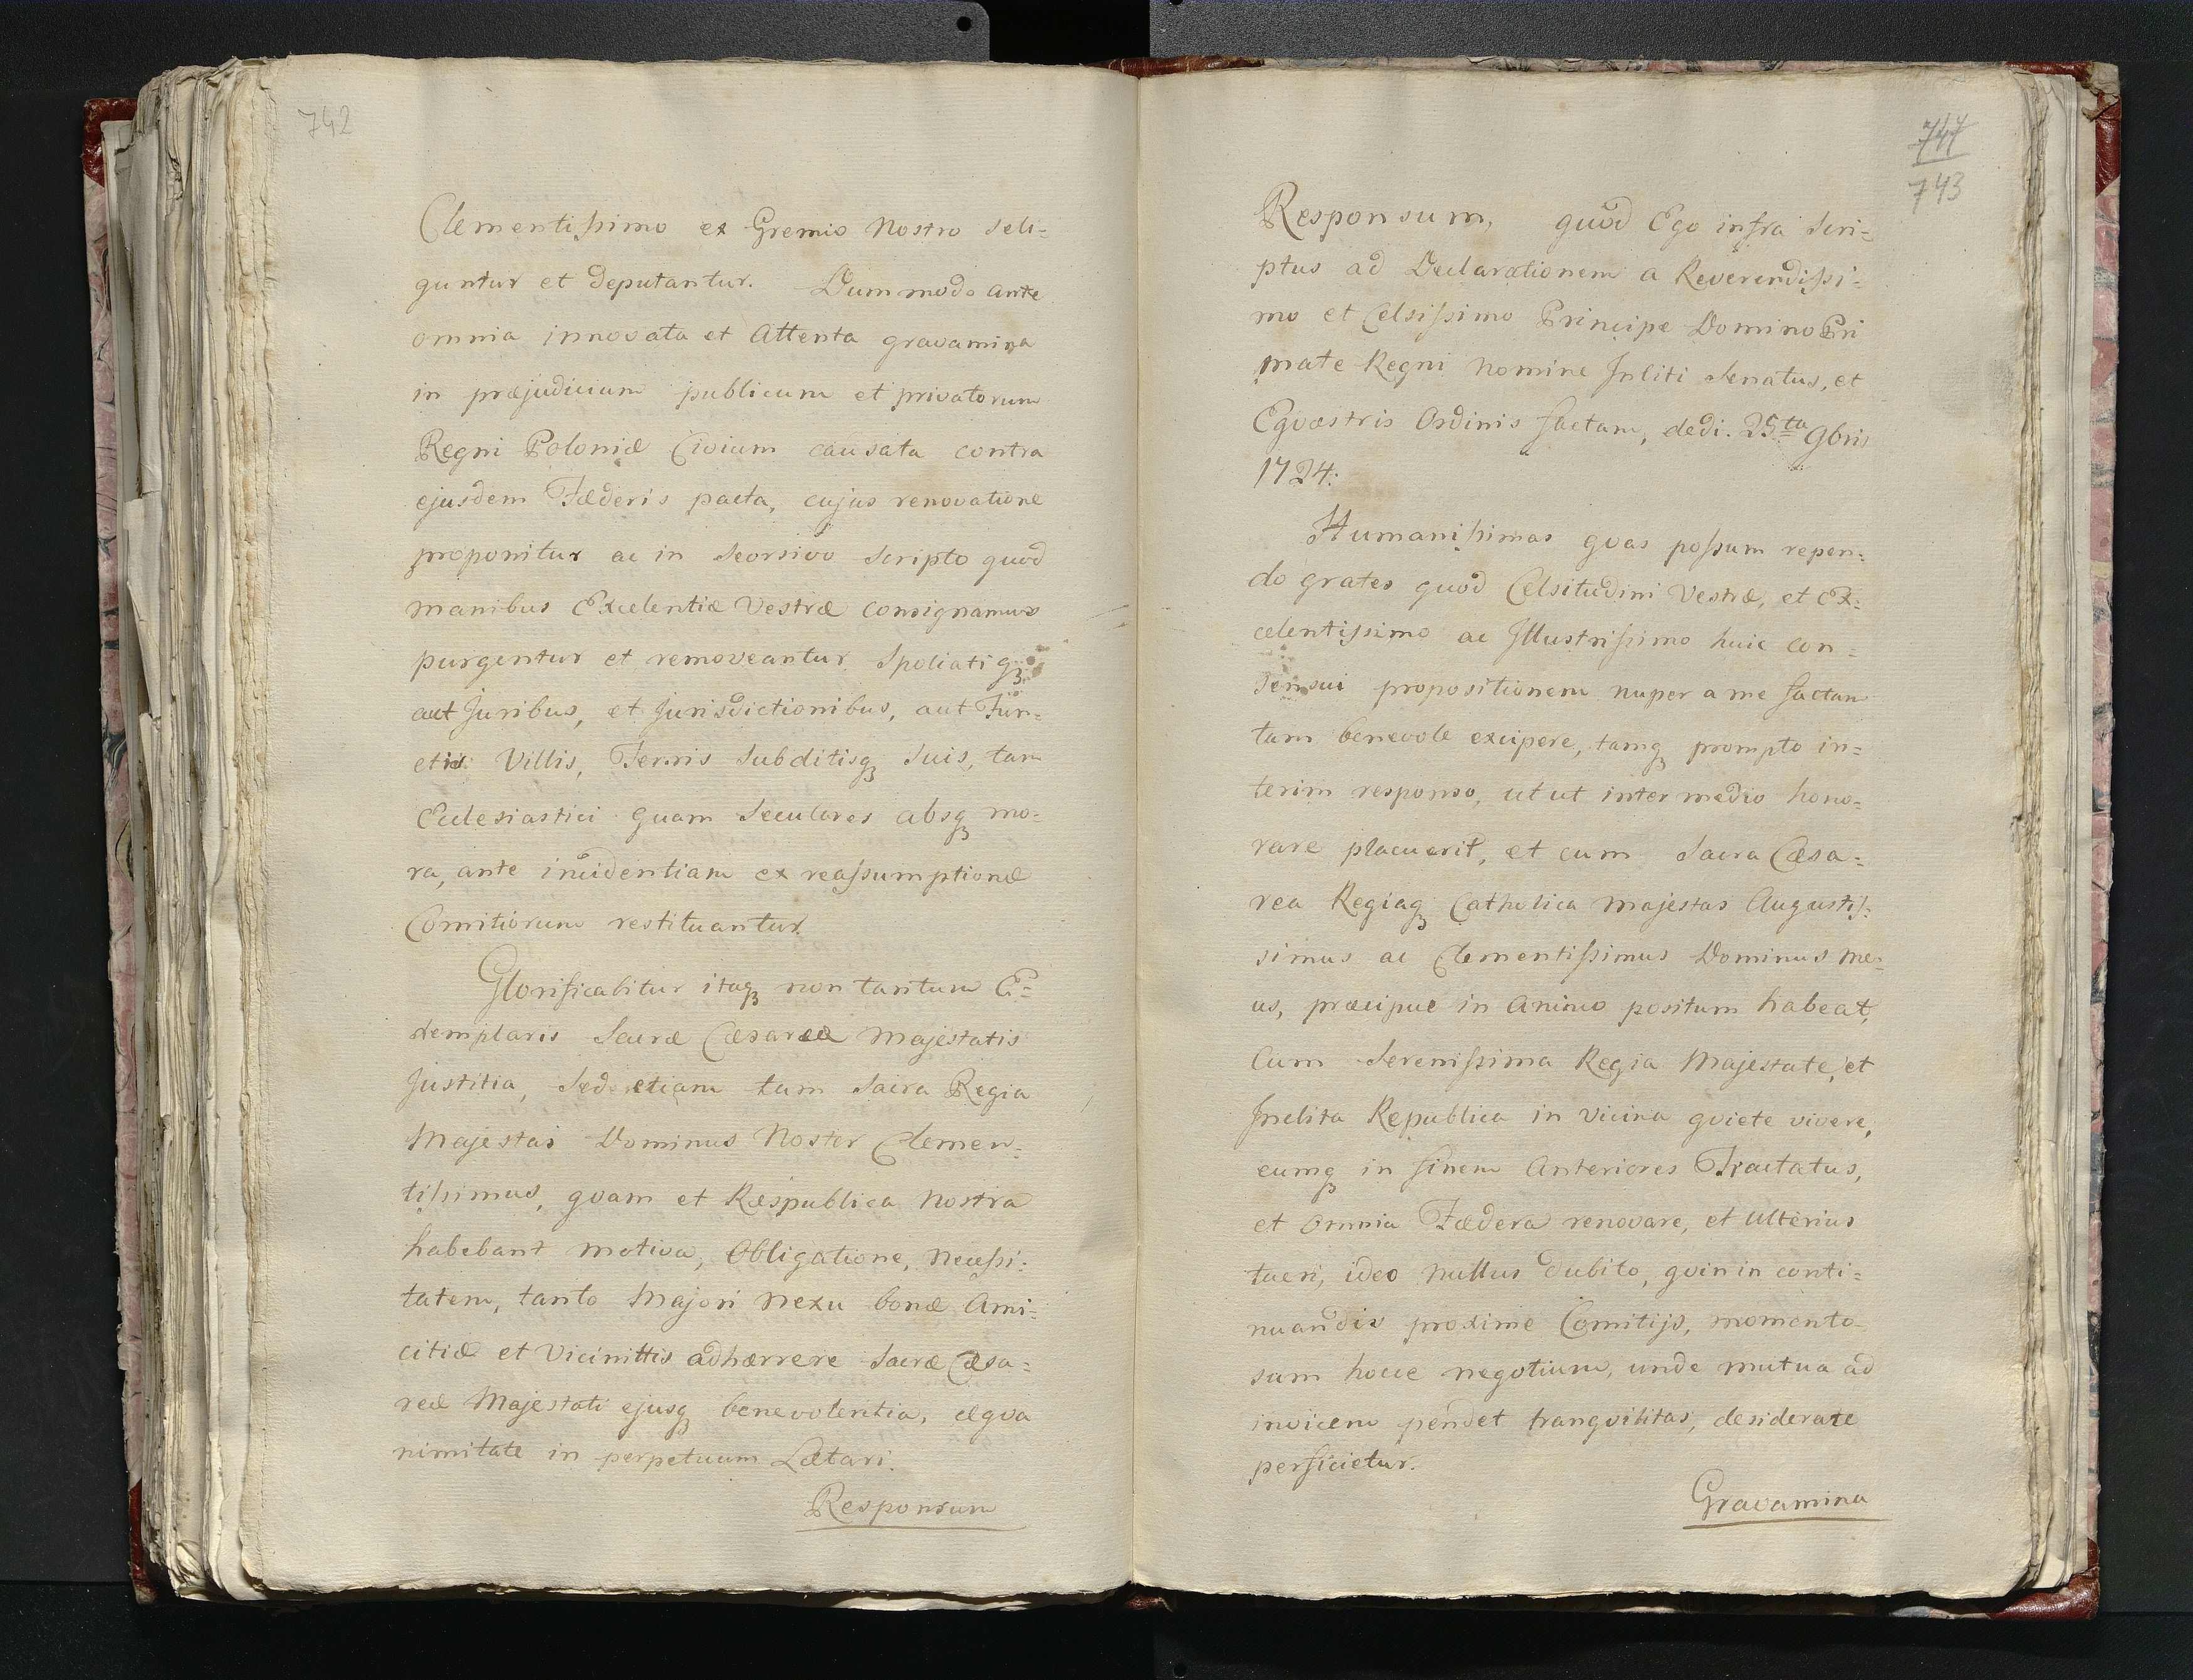 742
Clementissimo ex Gremio Nostro seli=
guntur et deputantur. Dummodo ante
omnia innovata et Attenta gravamina
in præjudicium publicum et privatorum
Regni Poloniæ Civium causata contra
ejusdem Fæderis pacta, cujus renovatione
proponitur ac in Seorsivo Scripto quod
manibus Excelentiæ Vestræ consignamus
purgentur et removeantur, Spoliatiq3
aut Juribus, et Jurisdictionibus, aut Fun=
ctis Villis, Terris Subditisq3 Suis, tam
Ecclesiastici quam Seculares absq3 mo=
ra, ante incidentiam ex reassumptione
Comitiorum restituantur.
Glorificabitur itaq3 non tantum E=
xemplaris Sacræ Cæsareæ Majestatis
Justitia, Sed etiam tum Sacra Regia
Majestas Dominus Noster Clemen=
tissimus, qvam et Respublica Nostra
habebant motiva, Obligatione, Necessi=
tatem, tanto Majori nexu bonæ Ami=
citiæ et Vicinittis adhærrere Sacræ Cæsa=
reæ Majestati ejusq3 benevolentia, æqva
nimitate in perpetuum Lætari.
Responsum
747
743
Responsum, quod Ego infra Scri=
ptus ad Declarationem a Reverendissi=
mo et Celsissimo Principe Domino Pri
mate Regni Nomine Incliti Senatus, et
Eqvestris Ordinis factam, dedi. 25ta 9bris
1724:
Humanissimas qvas possum repen=
do grates quod Celsitudini Vestræ, et Ex=
celentissimo ac Illustrissimo huic con=
sensui propositionem nuper a me factam
tam benevole excipere, tamq3 prompto in=
terim responso, ut ut intermedio hono=
rare placuerit, et cum Sacra Cæsa=
rea Regiaq3 Catholica Majestas Augustis=
simus ac Clementissimus Dominus Me=
us, præcipue in Animo positum habeat,
Cum Serenissima Regia Majestate, et
Inclita Republica in vicina qviete vivere,
eumq3 in finem Anteriores Tractatus,
et Omnia Fædera renovare, et Ulterius
tueri, ideo Nullus dubito, qvin in conti=
nuandis proxime Comitijs, momento=
sum hocce negotium, unde mutua ad
invicem pendet tranqvilitas, desiderate
perficietur.
Gravamina